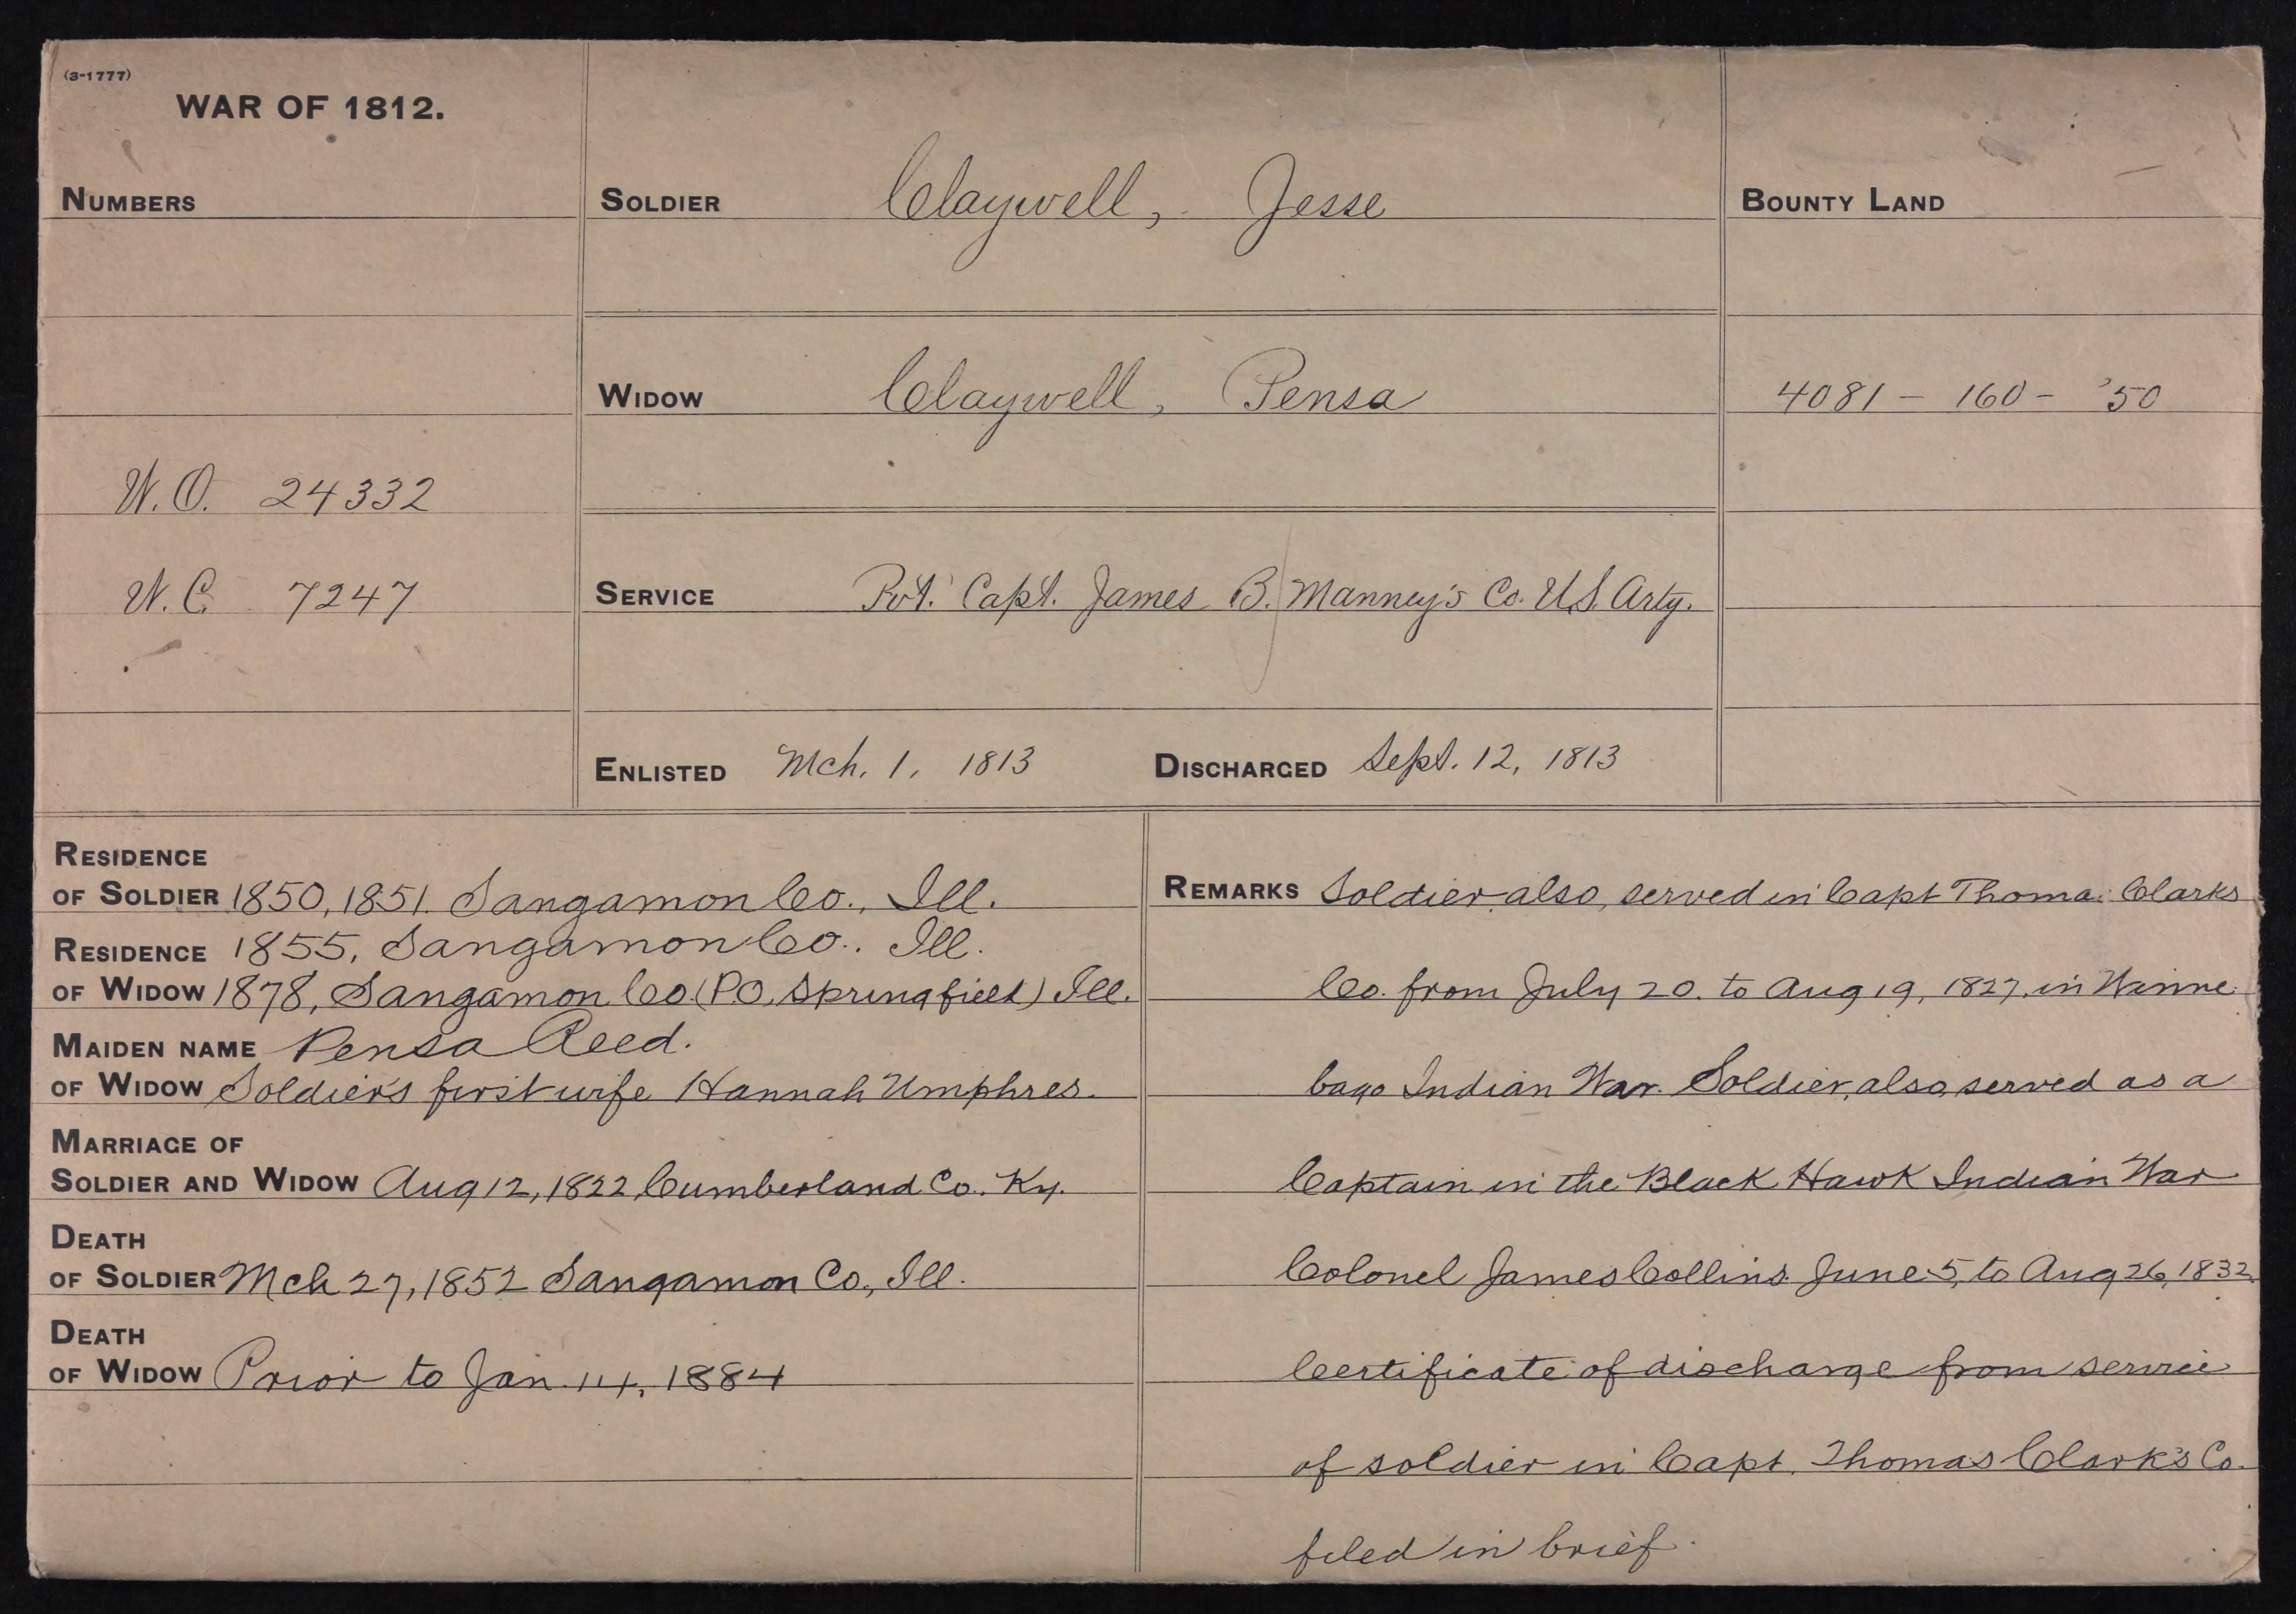 (3-1777)
WAR OF 1812.
NUMBERS
W.O. 24332
W.C. 7247
SOLDIER Claywell, Jesse
WIDOW Claywell, Pensa
SERVICE Pvt. Capt. James B. Manney's Co. U.S. Arty.
ENLISTED Mch. 1, 1813 DISCHARGED Sept. 12, 1813
BOUNTY LAND
4081 - 160 - '50
RESIDENCE
OF SOLDIER 1850, 1851. Sangamon Co., Ill.
RESIDENCE 1855, Sangamon Co., Ill.
OF WIDOW 1878, Sangamon Co. (P.O. Springfield) Ill.
MAIDEN NAME Pensa Reed.
OF WIDOW Soldier's first wife Hannah Umphres.
MARRIAGE OF
SOLDIER AND WIDOW Aug 12, 1822 Cumberland Co. Ky.
DEATH
OF SOLDIER Mch 27, 1852 Sangamon Co., Ill.
DEATH
OF WIDOW Prior to Jan. 14, 1884
REMARKS Soldier also served in Capt Thomas Clarks
Co. from July 20. to Aug 19, 1827. in Winne
bago Indian War. Soldier also served as a
Captain in the Black Hawk Indian War
Colonel James Collins. June 5, to Aug 26, 1832.
Certificate of discharge from service
of soldier in Capt. Thomas Clark's Co.
filed in brief.